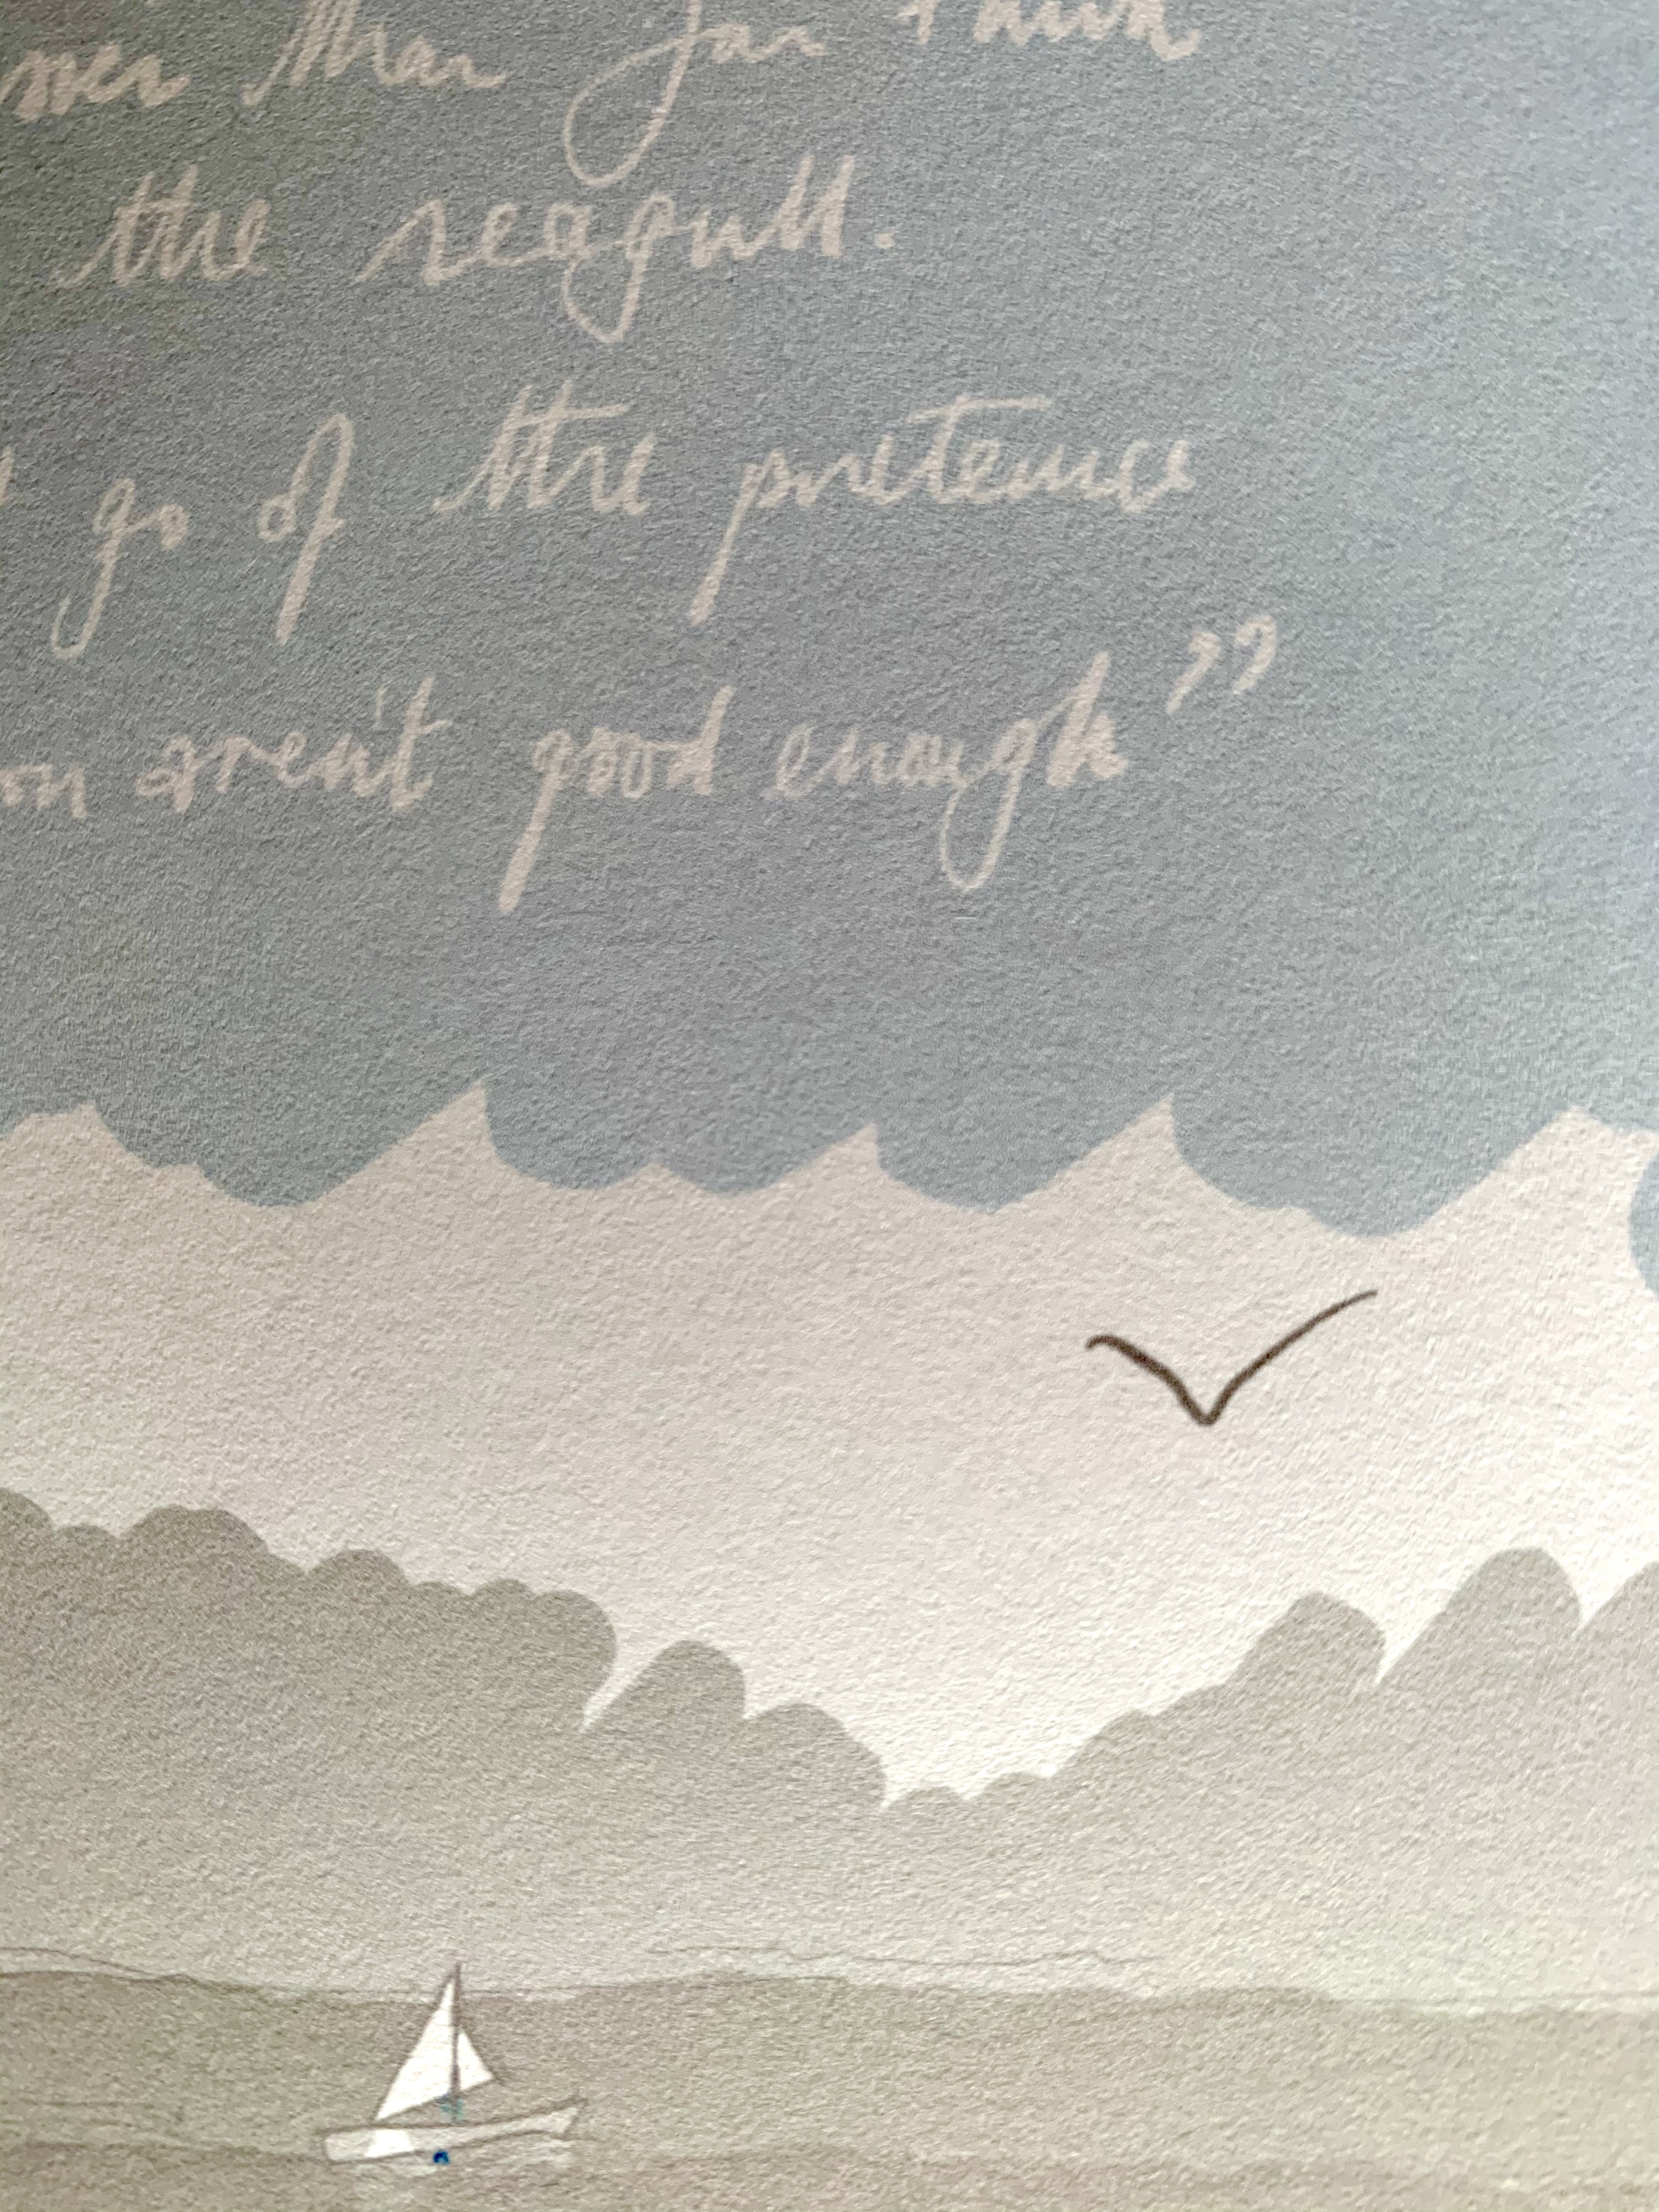 than you think
the seagull.
go of the pretence
aren't good enough”